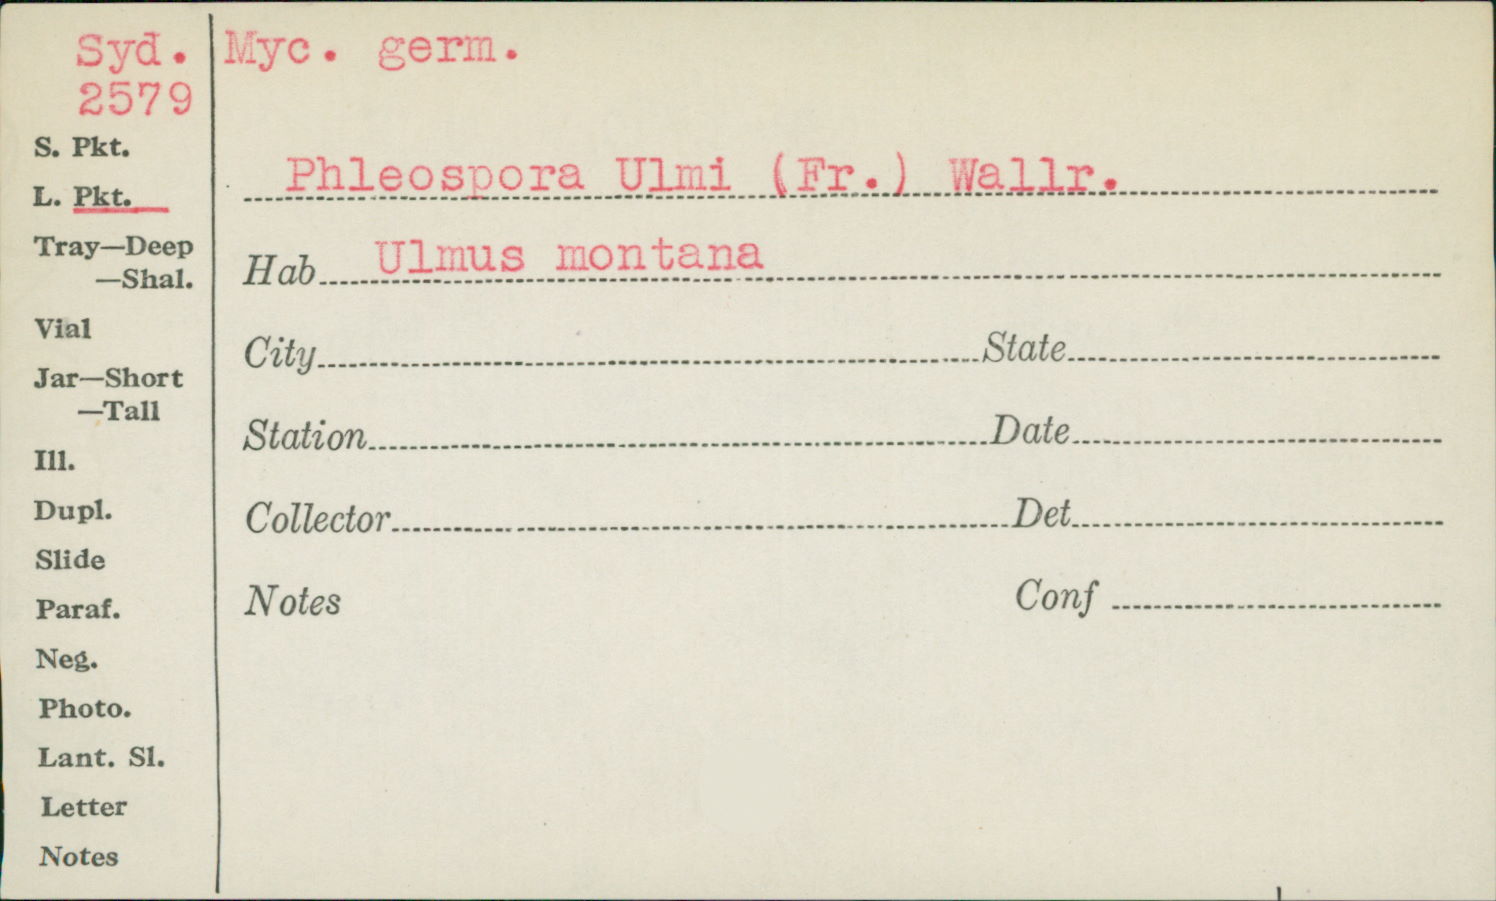 Syd. Myc. germ.
2579
S. Pkt.
L. Pkt.
Tray—Deep
—Shal.
Vial
Jar—Short
—Tall
Ill.
Dupl.
Slide
Paraf.
Neg.
Photo.
Lant. Sl.
Letter
Notes
Phleospora Ulmi (Fr.) Wallr.
Hab Ulmus montana
City State
Station Date
Collector Det
Notes Conf